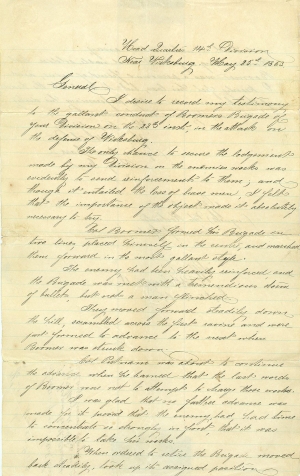 Head Quarters 14th Division
Near Vicksburg May 25th 1863
General
I desire to record my testimony
to the gallant conduct of Boomers Brigade of
your Division on the 22d inst, in the attack on
the defences of Vicksburg.
The only chance to secure the lodgement
made by my Division in the enemies works was
evidently to send reinforcements to them, and
though it entailed the loss of brave men, I felt
that the importance of the object made it absolutely
necessary to try.
Col Boomer formed his Brigade in
two lines, placed himself in the centre, and marched
them forward in the most gallant style.
The enemy had been heavily reinforced and
the Brigade was met with a tremendous storm
of bullets, but not a man flinched.
They moved forward steadily down
the hill, scrambled across the first ravine and were
just formed to advance to the next when
Boomer was struck down.
Col Putnam was about to continue
the advance when he learned that the last words
of Boomer was not to attempt to charge those works.
I was glad that no further advance was
made for it proved that the enemy had had time
to concentrate so strongly in front that it was
impossible to take his works.
When ordered to retire the Brigade moved
back steadily, took up its assigned position